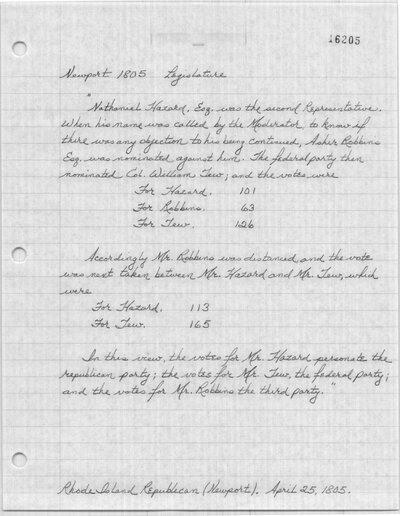 16205
Newport 1805 Legislature
"Nathaniel Hazard, Esq. was the second Representative.
When his name was called by the Moderator, to know if
there was any objection to his being continued, Asher Robbins
Esq. was nominated against him. The federal party then
nominated Col. William Tew; and the votes were
For Hazard. 101
For Robbins. 63
For Tew. 126
Accordingly Mr. Robbins was distanced, and the vote
was next taken between Mr. Hazard and Mr. Tew, which
were
For Hazard. 113
For Tew. 165
In this view, the votes for Mr. Hazard personate the
republican party; the votes for Mr. Tew, the federal party;
and the votes for Mr. Robbins the third party."
Rhode Island Republican (Newport). April 25, 1805.